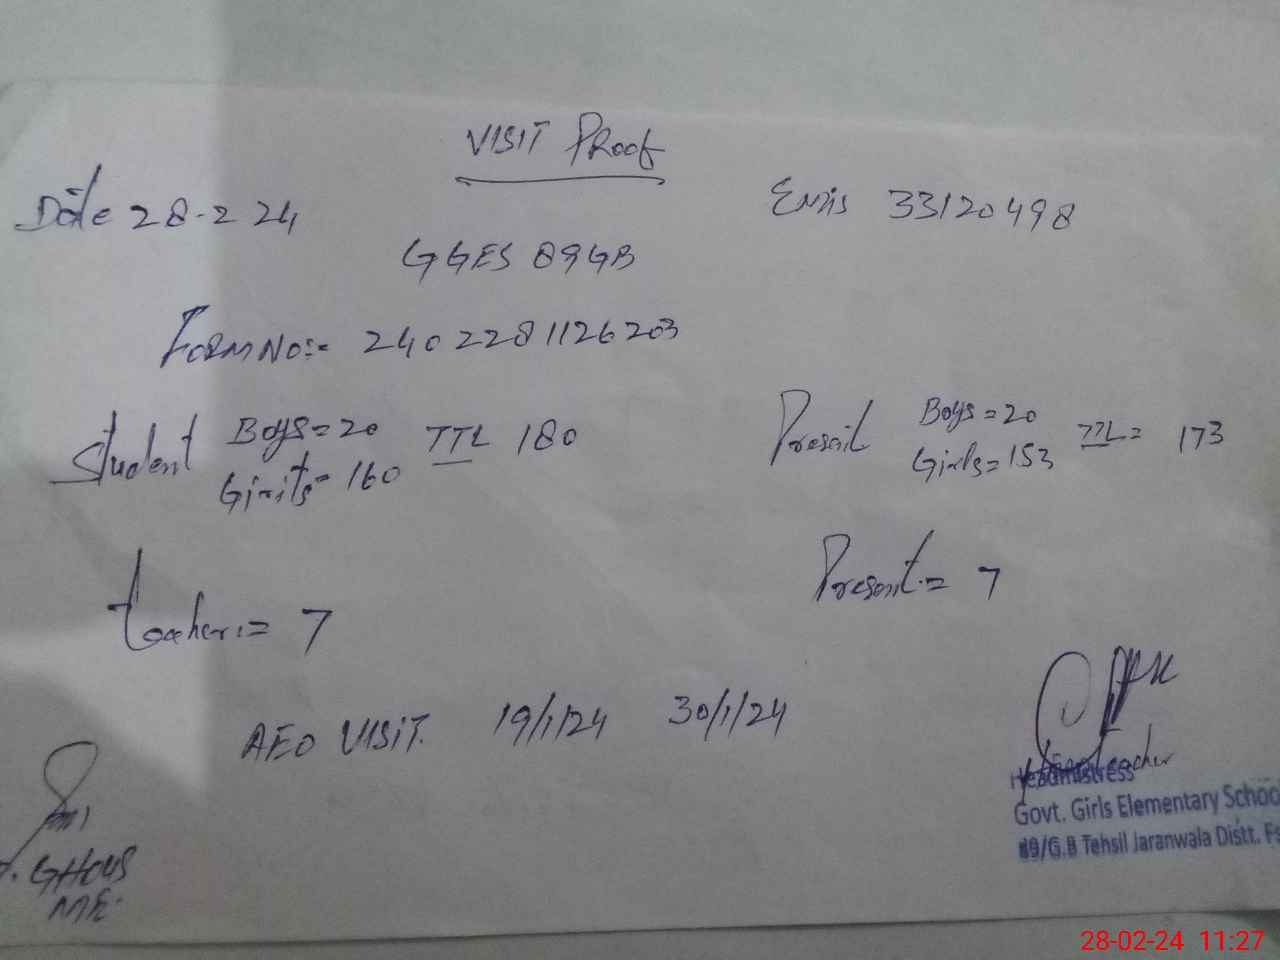 VISIT PRoof
Date 28-2 24
Emis 33120498
GGES 89GB
FORM NO:= 2402281126203
Student Boys=20 TTL 180
Girls= 160
Present Boys=20 TTL= 173
Girls=153
teacher:= 7
Present:= 7
AEO VISIT. 19/1/24 30/1/24
teacher
Headmistress
Govt. Girls Elementary School
89/G.B Tehsil Jaranwala Distt. Fs
GHOUS
28-02-24 11:27